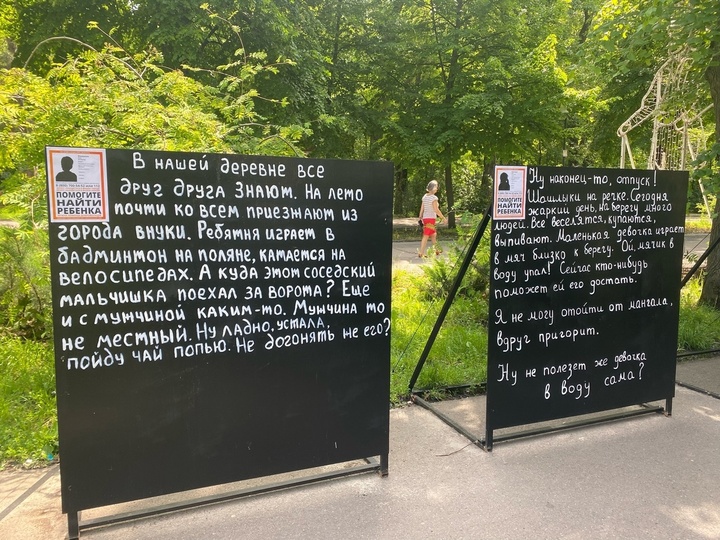 ПОМОГИТЕ
НАЙТИ
РЕБЕНКА
В нашей деревне все
друг друга знают. На лето
почти ко всем приезжают из
города внуки. Ребятня играет в
бадминтон на поляне, катается на
велосипедах. А куда этот соседский
мальчишка поехал за ворота? Еще
и с мужчиной каким-то. Мужчина то
не местный. Ну ладно, устала,
пойду чай попью. Не догонять же его?
ПОМОГИТЕ
НАЙТИ
РЕБЕНКА
Ну наконец-то, отпуск!
Шашлыки на речке. Сегодня
жаркий день, на берегу много
людей. Все веселятся, купаются,
выпивают. Маленькая девочка играет
в мяч близко к берегу. Ой, мячик в
воду упал! Сейчас кто-нибудь
поможет ей его достать.
Я не могу отойти от мангала,
вдруг пригорит.
Ну не полезет же девочка
в воду сама?